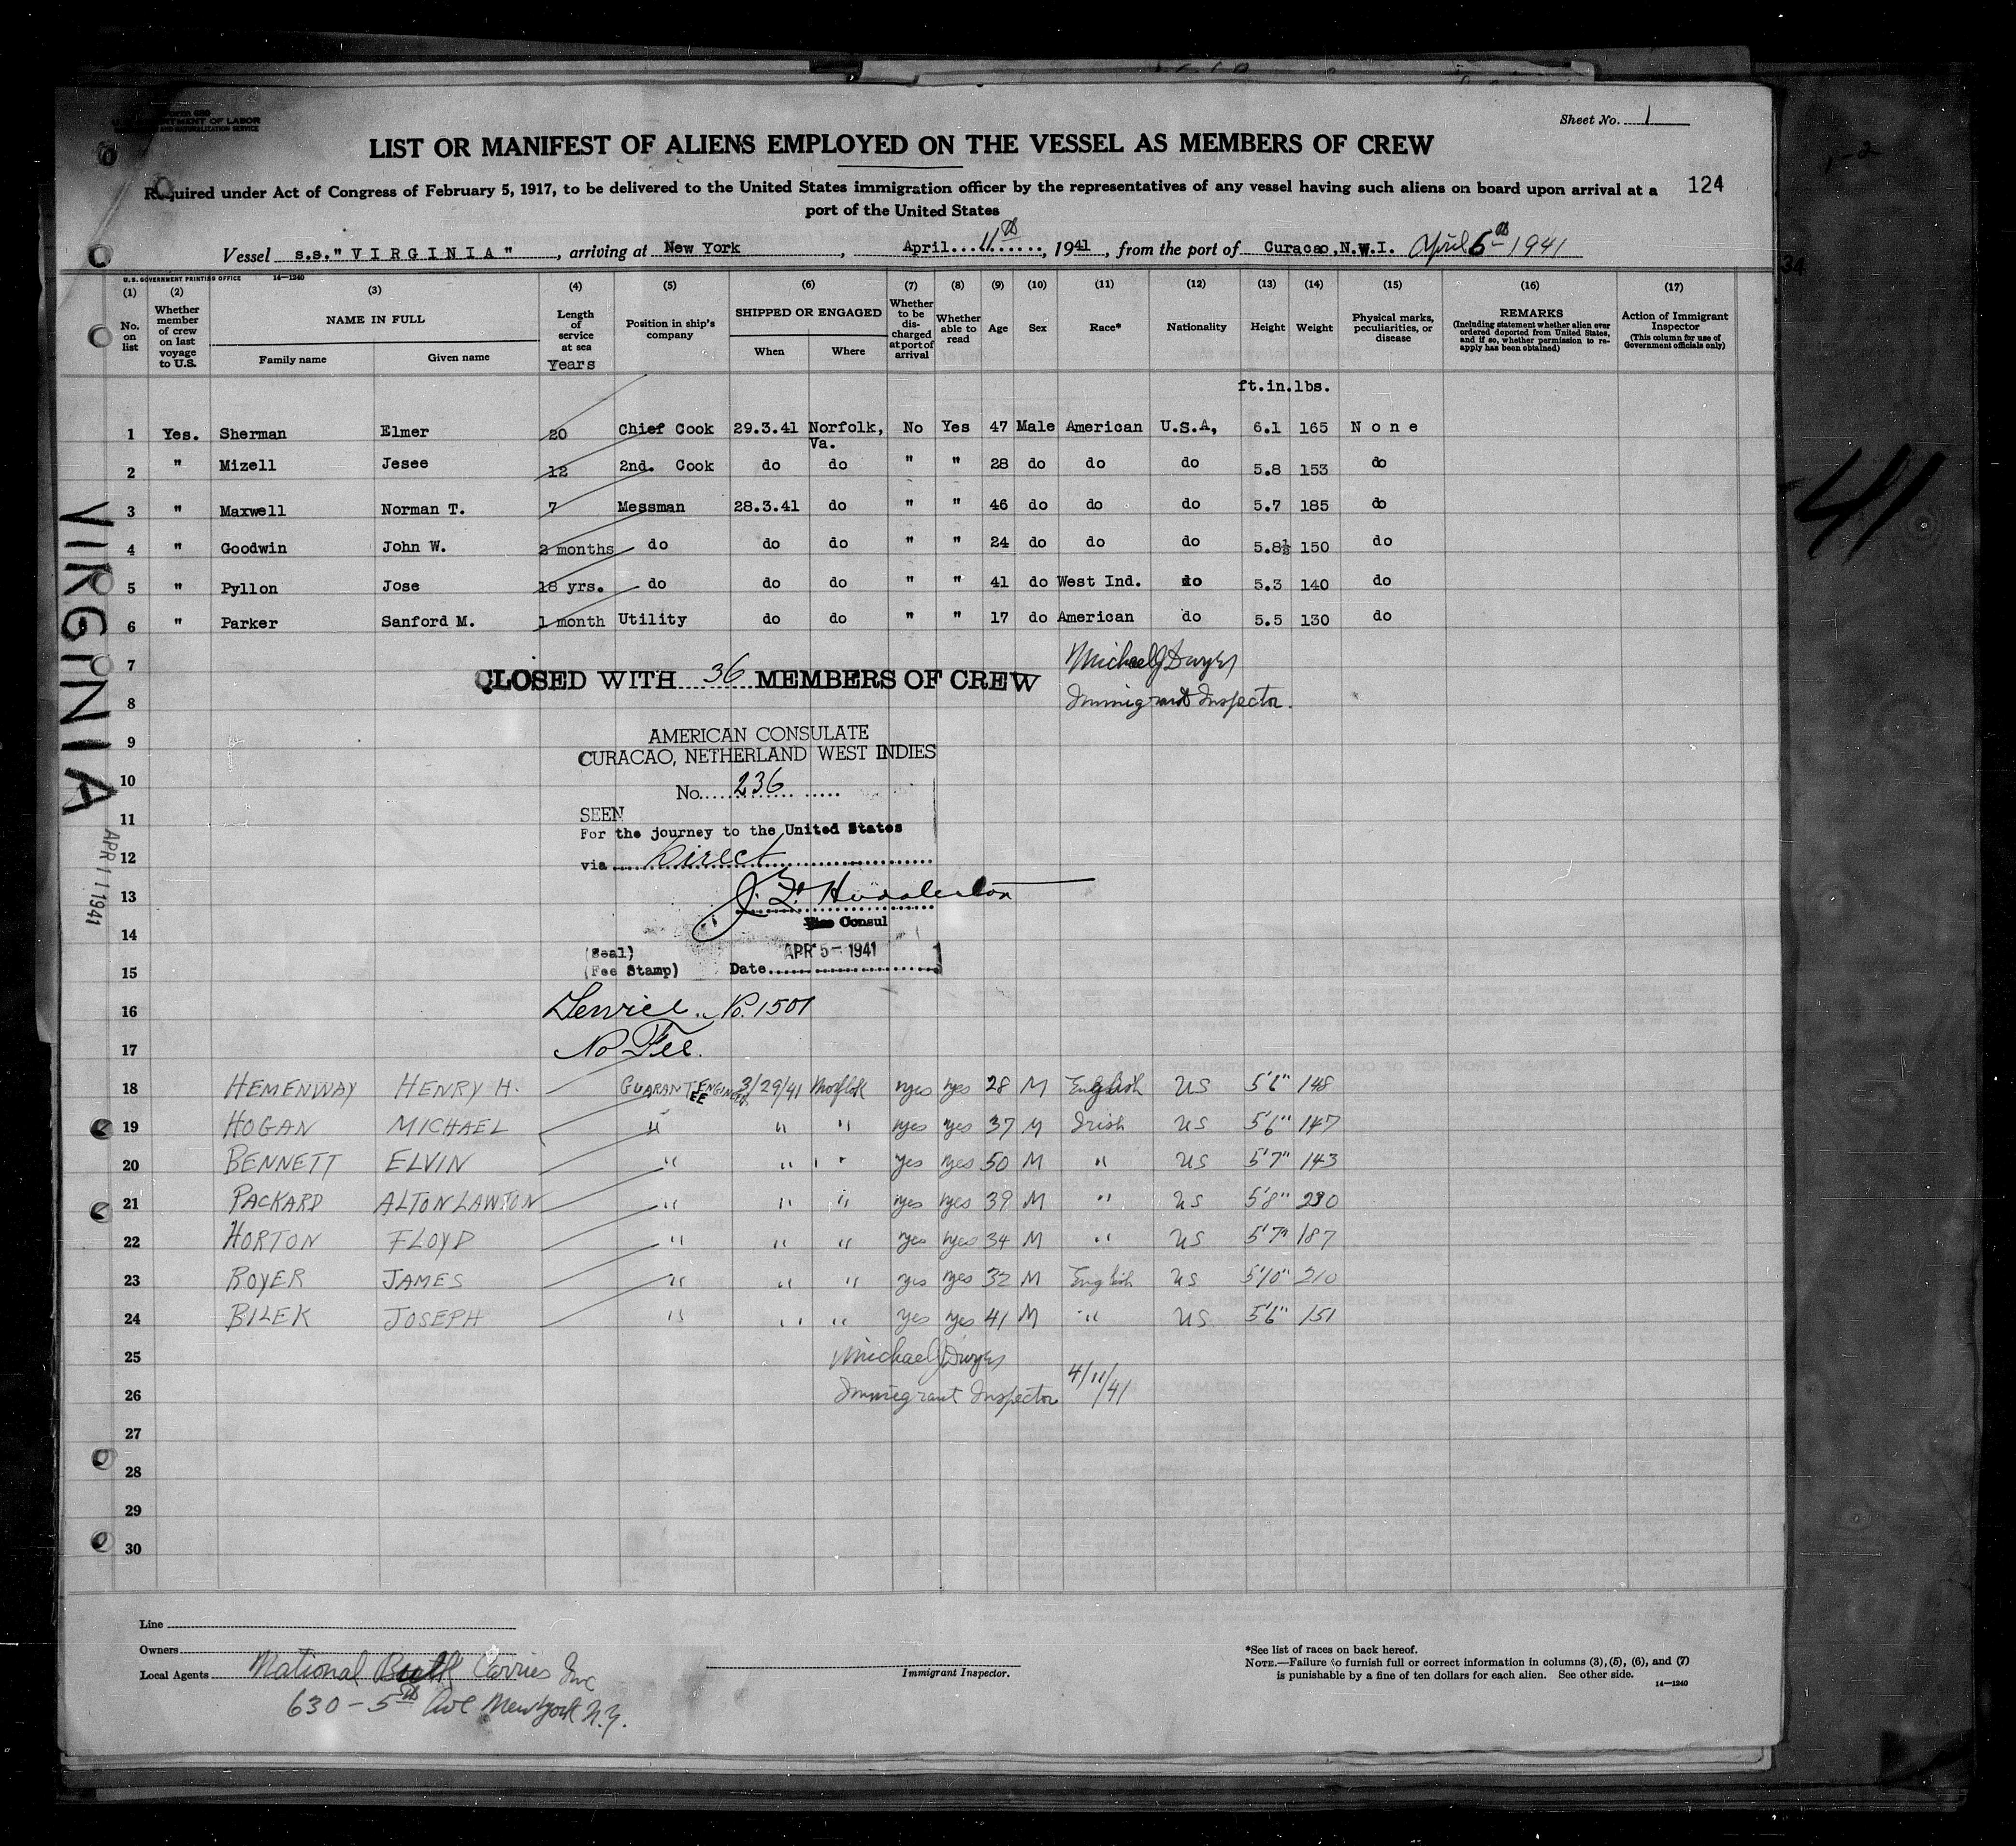 Form 680
U.S. DEPARTMENT OF LABOR
IMMIGRATION AND NATURALIZATION SERVICE
Sheet No. 1
LIST OR MANIFEST OF ALIENS EMPLOYED ON THE VESSEL AS MEMBERS OF CREW
Required under Act of Congress of February 5, 1917, to be delivered to the United States immigration officer by the representatives of any vessel having such aliens on board upon arrival at a
port of the United States
124
Vessel s.s."VIRGINIA", arriving at New York, April 11th, 1941, from the port of Curacao, N.W.I. April 6th 1941
U.S. GOVERNMENT PRINTING OFFICE 14—1240
(1) (2) (3) (4) (5) (6) (7) (8) (9) (10) (11) (12) (13) (14) (15) (16) (17)
No. on list
Whether member of crew on last voyage to U.S.
NAME IN FULL
Family name Given name
Length of service at sea
Years
Position in ship's company
SHIPPED OR ENGAGED
When Where
Whether to be discharged at port of arrival
Whether able to read
Age
Sex
Race*
Nationality
Height
Weight
Physical marks, peculiarities, or disease
REMARKS
(Including statement whether alien ever ordered deported from United States, and if so, whether permission to reapply has been obtained)
Action of Immigrant Inspector
(This column for use of Government officials only)
ft.in.lbs.
1 Yes. Sherman Elmer 20 Chief Cook 29.3.41 Norfolk, Va. No Yes 47 Male American U.S.A, 6.1 165 None
2 " Mizell Jesee 12 2nd. Cook do do " " 28 do do do 5.8 153 do
3 " Maxwell Norman T. 7 Messman 28.3.41 do " " 46 do do do 5.7 185 do
4 " Goodwin John W. 2 months do do do " " 24 do do do 5.8½ 150 do
5 " Pyllon Jose 18 yrs. do do do " " 41 do West Ind. do 5.3 140 do
6 " Parker Sanford M. 1 month Utility do do " " 17 do American do 5.5 130 do
7
CLOSED WITH 36 MEMBERS OF CREW
Michael J Dwyer
Immigrant Inspector.
8
9
AMERICAN CONSULATE
CURACAO, NETHERLAND WEST INDIES
10
No. 236
11
SEEN
For the journey to the United States
12
via Direct
13
14
Vice Consul
(Seal) APR 5 - 1941
15
(Fee Stamp) Date
16 Service No. 1501
17 No Fee.
18 HEMENWAY HENRY H. GUARANTEE ENGINEER 3/29/41 Norfolk yes yes 28 M English US 5'6" 148
19 HOGAN MICHAEL " " " yes yes 37 M Irish US 5'6" 147
20 BENNETT ELVIN " " " yes yes 50 M " US 5'7" 143
21 PACKARD ALTON LAWTON " " " yes yes 39 M " US 5'8" 230
22 HORTON FLOYD " " " yes yes 34 M " US 5'7" 187
23 BOYER JAMES " " " yes yes 32 M English US 5'10" 210
24 BILEK JOSEPH " " " yes yes 41 M " US 5'6" 151
25
Michael J Dwyer
26
Immigrant Inspector 4/11/41
27
28
29
30
VIRGINIA
APR 11 1941
41
34
1-2
Line
Owners
Local Agents National Bulk Carriers Inc
630 - 5th Ave New York N.Y.
Immigrant Inspector.
*See list of races on back hereof.
NOTE.—Failure to furnish full or correct information in columns (3), (5), (6), and (7)
is punishable by a fine of ten dollars for each alien. See other side.
14—1240